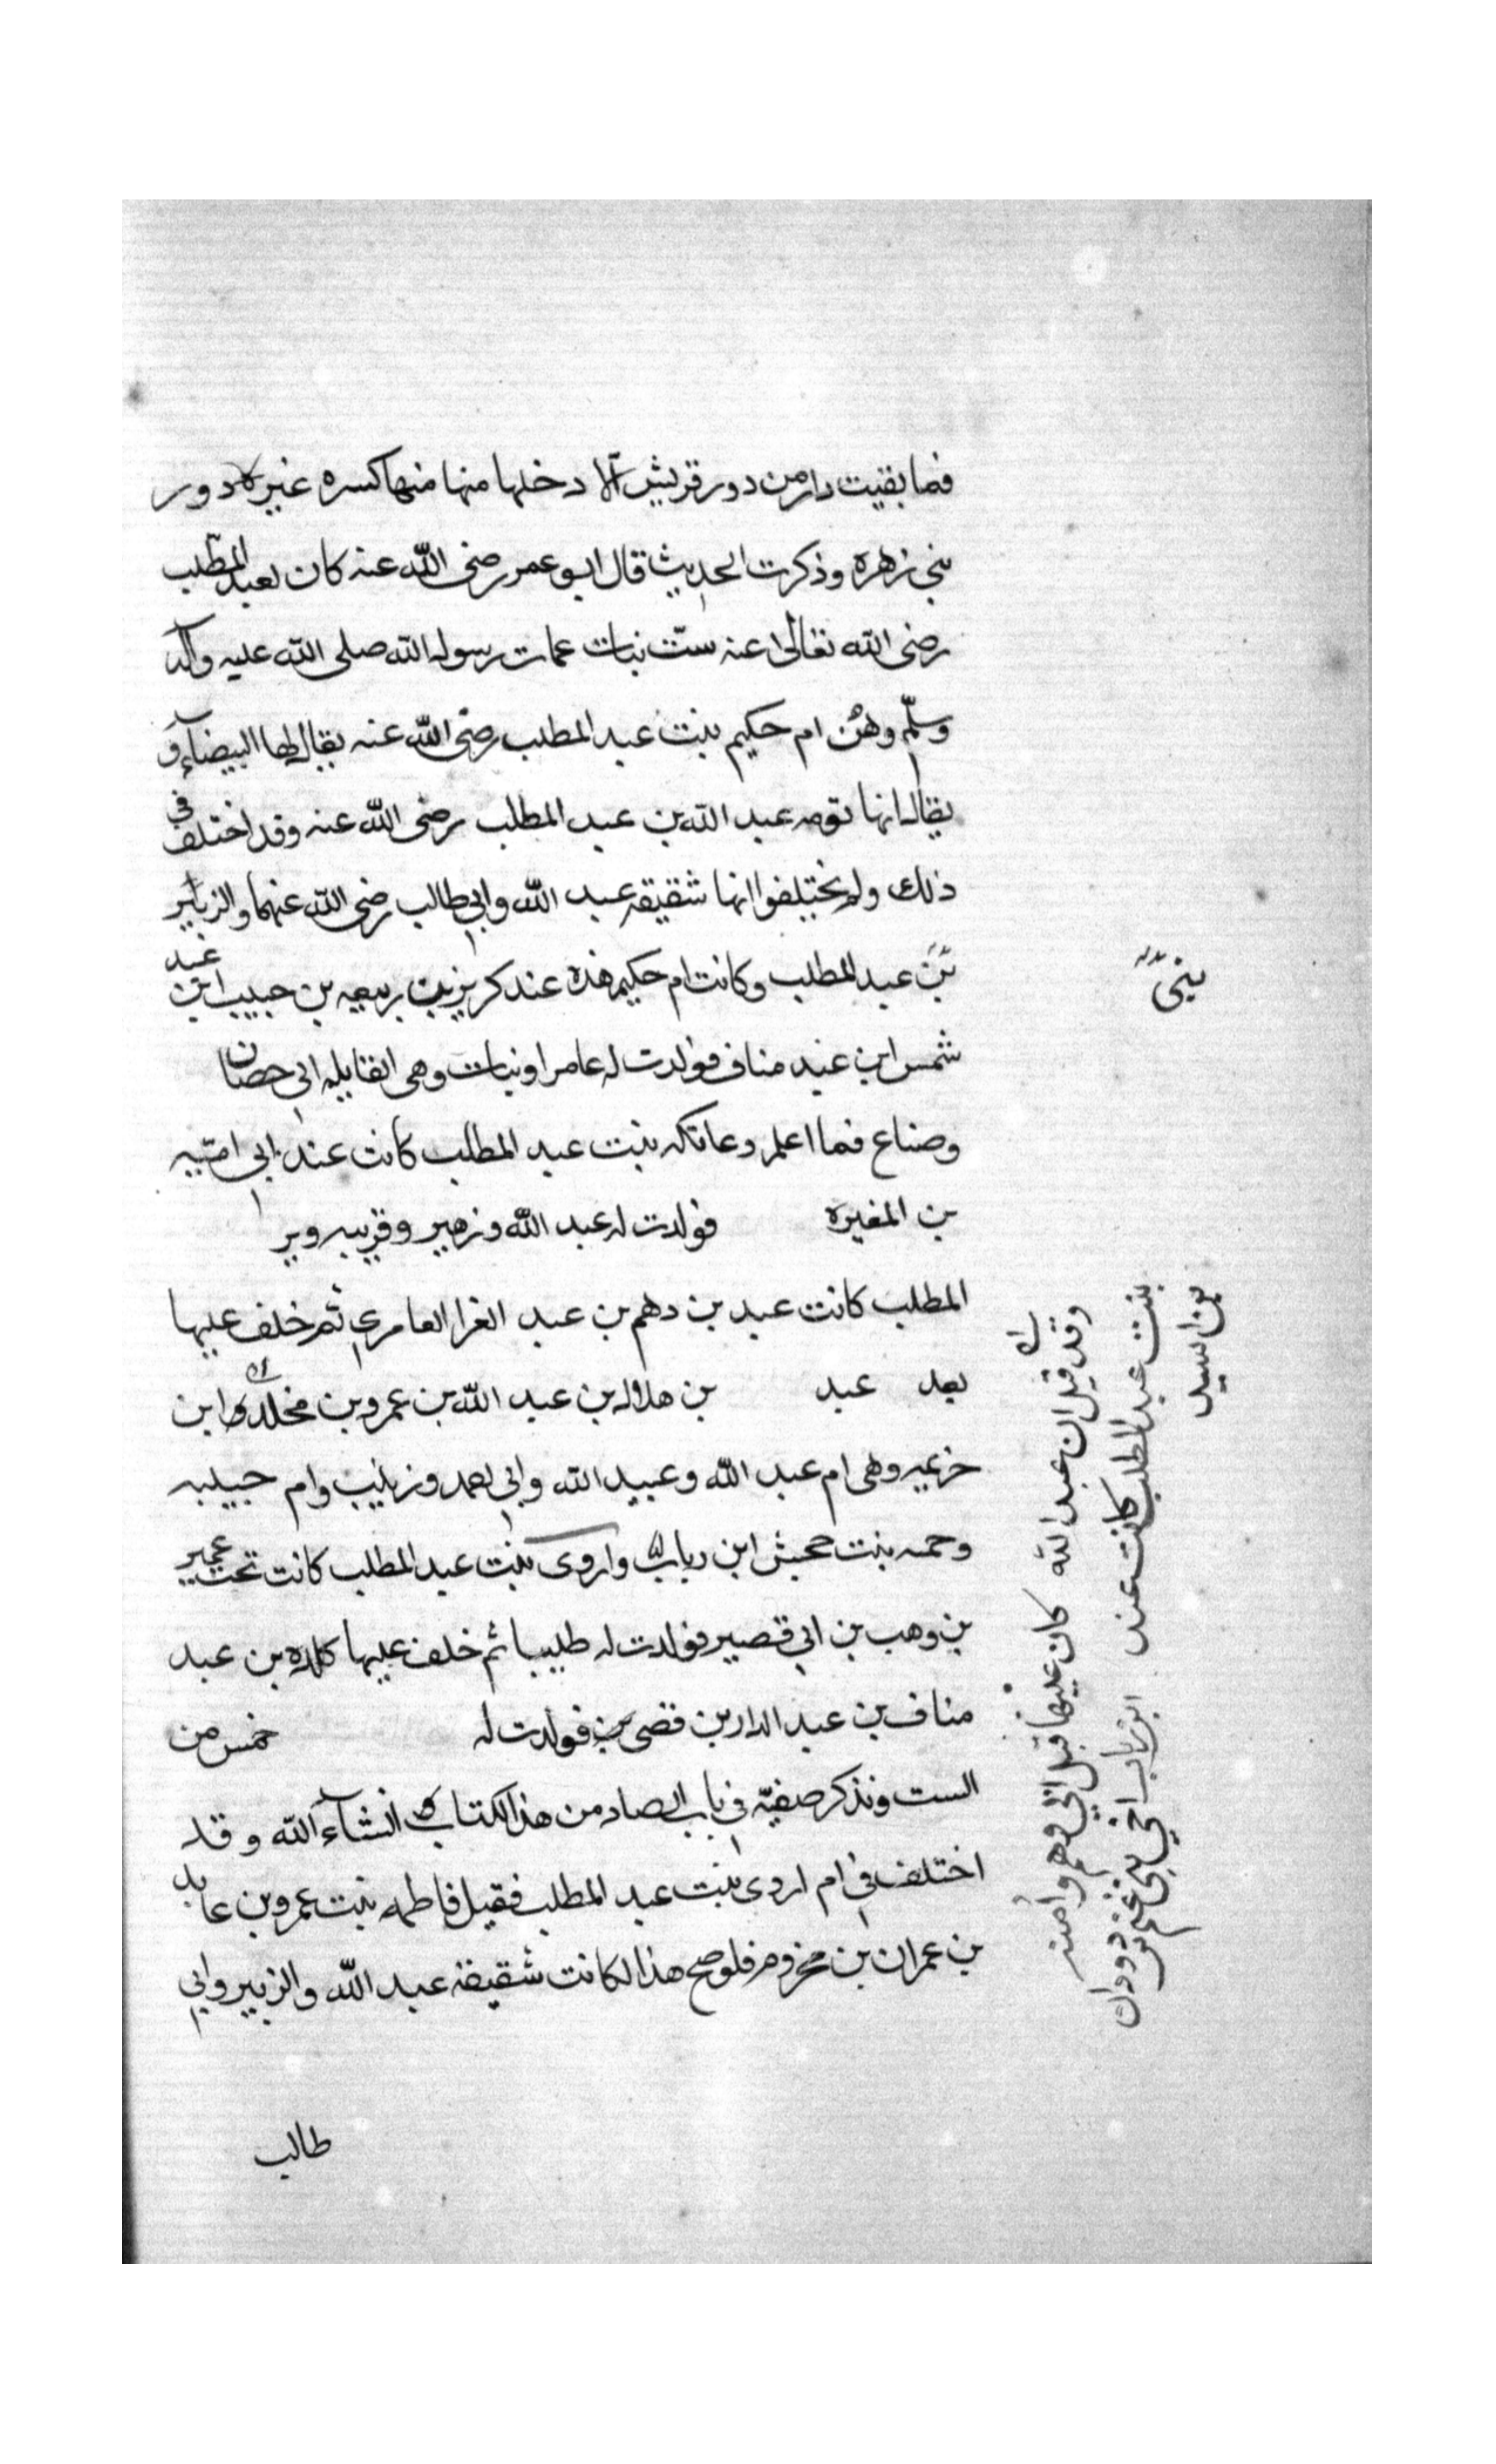 فما بقيت دار من دور قريش الا دخلها منها منها كسره غير دور
بني زهره وذكرت الحديث قال ابو عمر رضى الله عنه كان لعبد المطلب
رضى الله تعالى عنه ستّ بنات عمات رسول الله صلى الله عليه وآله
وسلّم وهن ام حكيم بنت عبد المطلب رضى الله عنه يقال لها البيضاء و
يقال انها تومه عبد الله بن عبد المطلب رضى الله عنه وقد اختلف في
ذلك ولم يختلفوا انها شقيقه عبد الله وابي طالب رضى الله عنهما والزبير
بن عبد المطلب وكانت ام حكيم هذه عند كريز بن ربيعه بن حبيب ابن عبد
شمس ابن عبد مناف فولدت له عامرا وبنات وهى القايله انى حصان
وصناع فما اعلم وعاتكه بنت عبد المطلب كانت عند ابى اميّه
بن المغيره فولدت له عبد الله وزهير وقريبه وبر
المطلب كانت عبد بن دهم بن عبد الغرا العامرى ثم خلف عليها
بعد عبد بن هلال بن عبد الله بن عمرو بن مخلد ابن
خزيمه وهى ام عبد الله وعبيد الله وابي احمد وزينب وام حبيبه
وحمنه بنت جحش ابن رياب واروى بنت عبد المطلب كانت تحت عمير
بن وهب بن ابي قصير فولدت له طليبا ثم خلف عليها كلده بن عبد
مناف بن عبد الدار بن قصى فولدت له خمس من
الست ونذكر صفيّه في باب الصاد من هذا الكتاب انشاء الله وقد
اختلف في ام اروى بنت عبد المطلب فقيل فاطمه بنت عمرو بن عايد
بن عمران بن مخزوم فلو صح هذا لكانت شقيقة عبد الله والزبير وابي
طالب
وقد قيل ان عبد الله كان عليها قبل ابي وهم وامنه
بنت عبد المطلب كانت عند ابن رياب اخي بني غنم دودان
بن اسيد